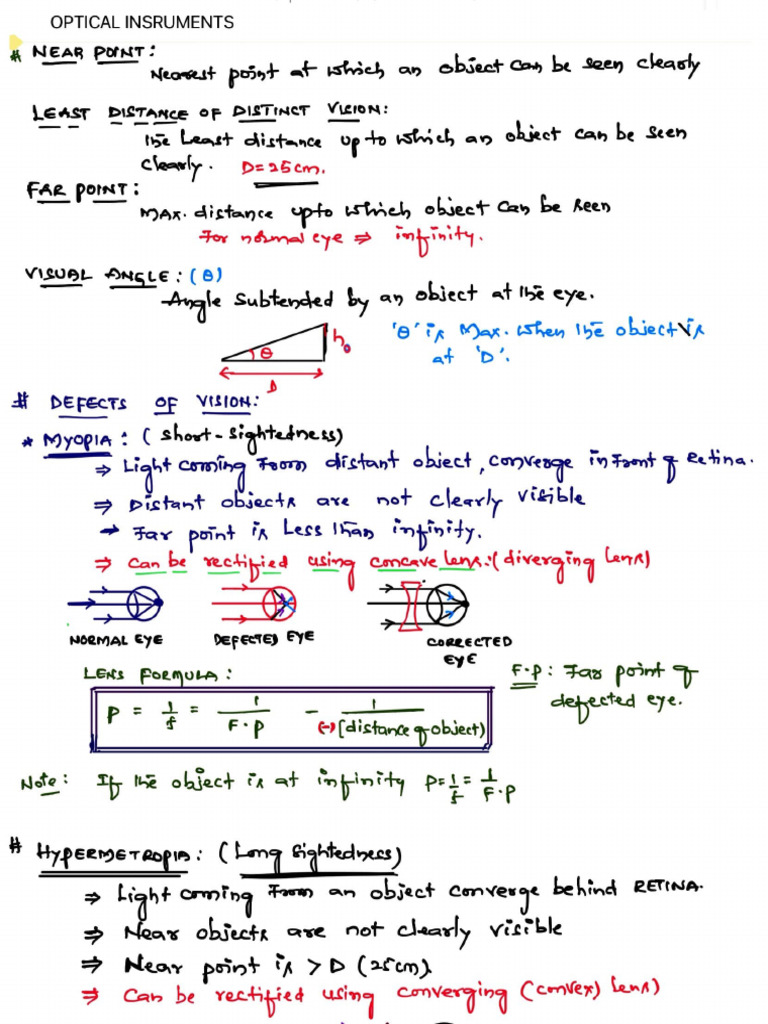 OPTICAL INSRUMENTS
# NEAR POINT:
Nearest point at which an object can be seen clearly
LEAST DISTANCE OF DISTINCT VISION:
The Least distance up to which an object can be seen
clearly. D=25cm.
FAR POINT:
Max. distance upto which object can be seen
For normal eye ⇒ infinity.
VISUAL ANGLE: (θ)
Angle subtended by an object at the eye.
'θ' is Max. when the object is
at 'D'.
θ
h₀
D
# DEFECTS OF VISION:
* MYOPIA: (short-sightedness)
⇒ Light coming from distant object, converge in front of Retina.
⇒ Distant objects are not clearly visible
→ Far point is Less than infinity.
⇒ can be rectified using concave lens:(diverging lens)
NORMAL EYE
DEFECTED EYE
CORRECTED
EYE
LENS FORMULA:
F.P: Far point of
defected eye.
P = 1/f = 1/F.P - 1/(-)[distance of object)
Note: If the object is at infinity P=1/f=1/F.P
# HYPERMETROPIA: (Long sightedness)
⇒ Light coming from an object converge behind RETINA.
⇒ Near objects are not clearly visible
⇒ Near point is > D (25cm).
⇒ Can be rectified using converging (convex) lens)